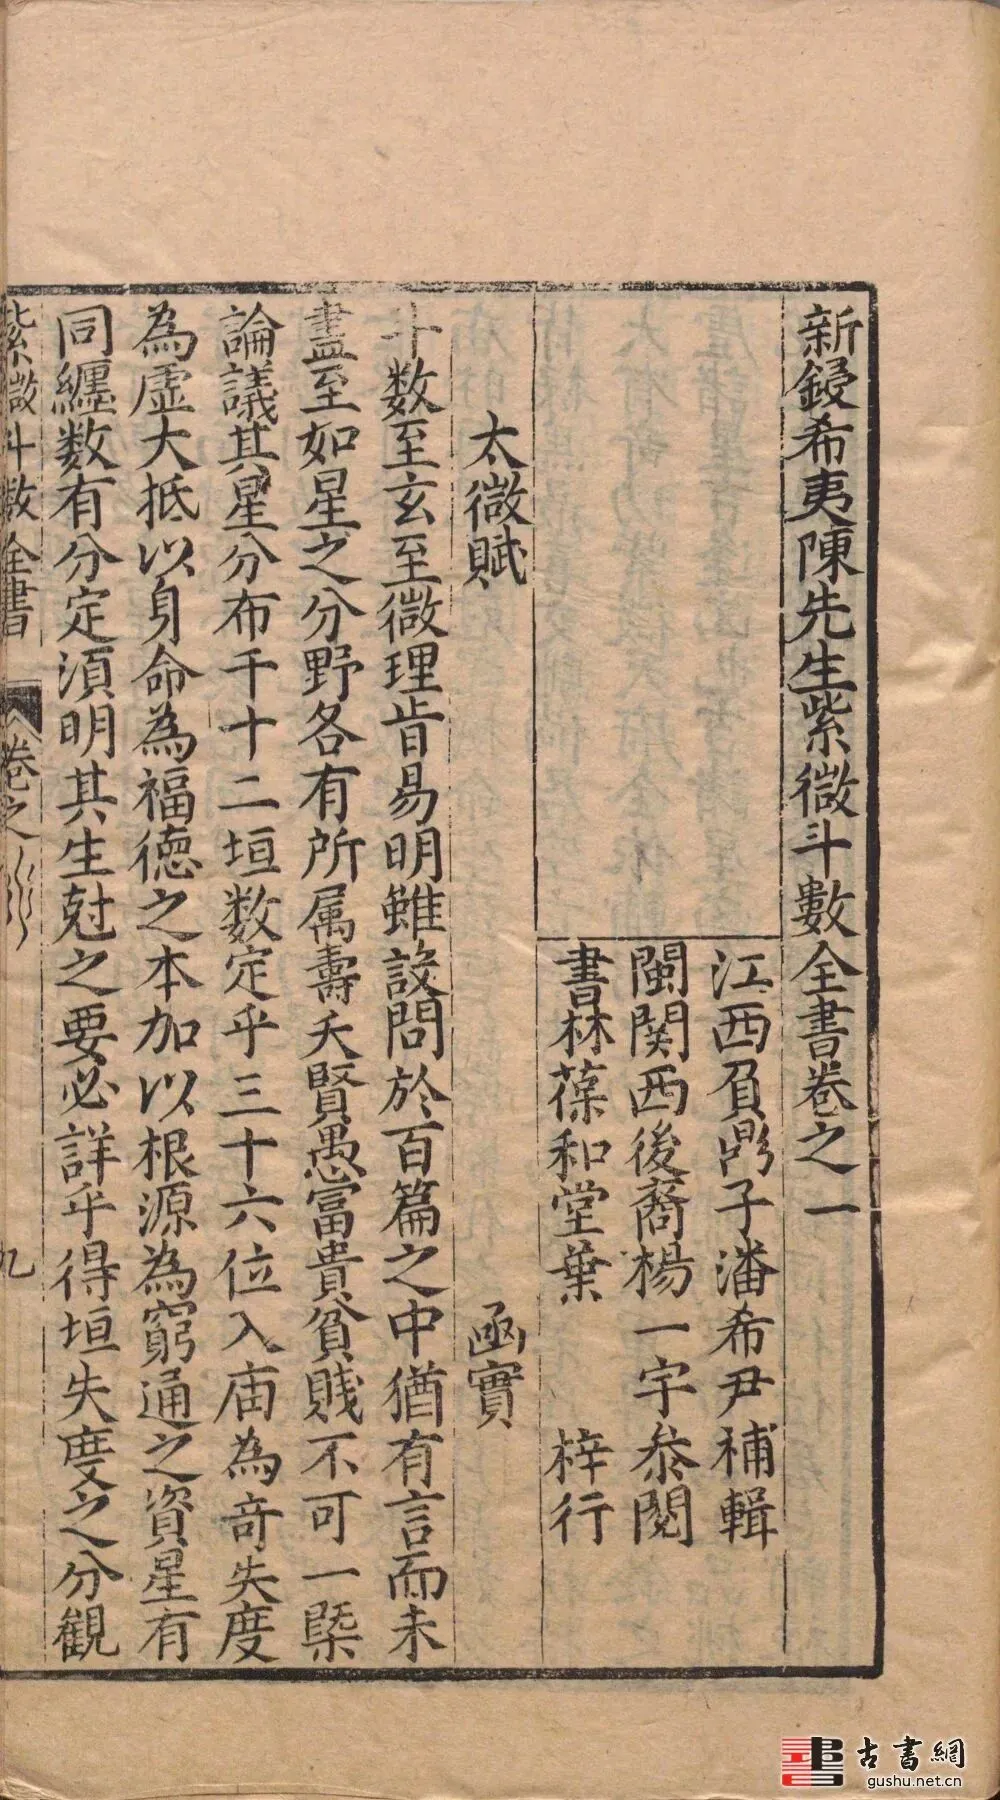 新鋟希夷陳先生紫微斗數全書卷之一
江西負鼎子潘希尹補輯
閩関西後裔楊一宇叅閱
書林葆和堂葉 梓行
太微賦 函實
斗数至玄至微理肯易明雖設問於百篇之中猶有言而未
盡至如星之分野各有所属壽夭賢愚富貴貧賤不可一槩
論議其星分布千十二垣数定乎三十六位入庙為竒失度
為虚大抵以身命為福德之本加以根源為窮通之資星有
同纏数有分定湏明其生尅之要必詳乎得垣失度之分觀
紫微斗数全書 卷之一 九
古書網
gushu.net.cn